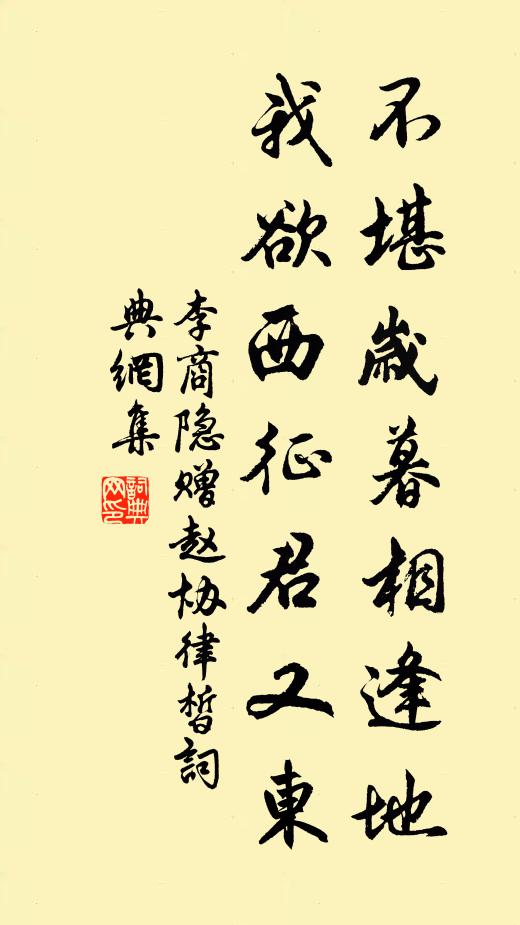 不堪歲暮相逢地
我欲西征君又東
李商隐赠赵协律晳詞
典網集
詞典网印